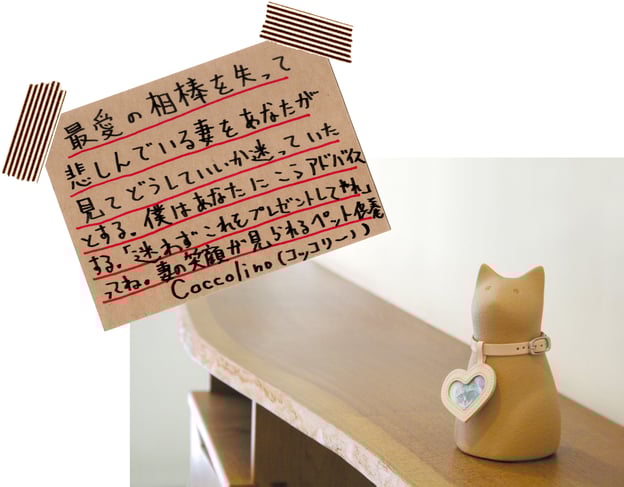 最愛の相棒を失って
悲しんでいる妻をあなたが
見てどうしていいか迷っていた
とする。僕はあなたにこうアドバイス
する。「迷わずこれをプレゼントしてやれ」
ってね。妻の笑顔が見られるペット仏壇
Coccolino(コッコリーノ)